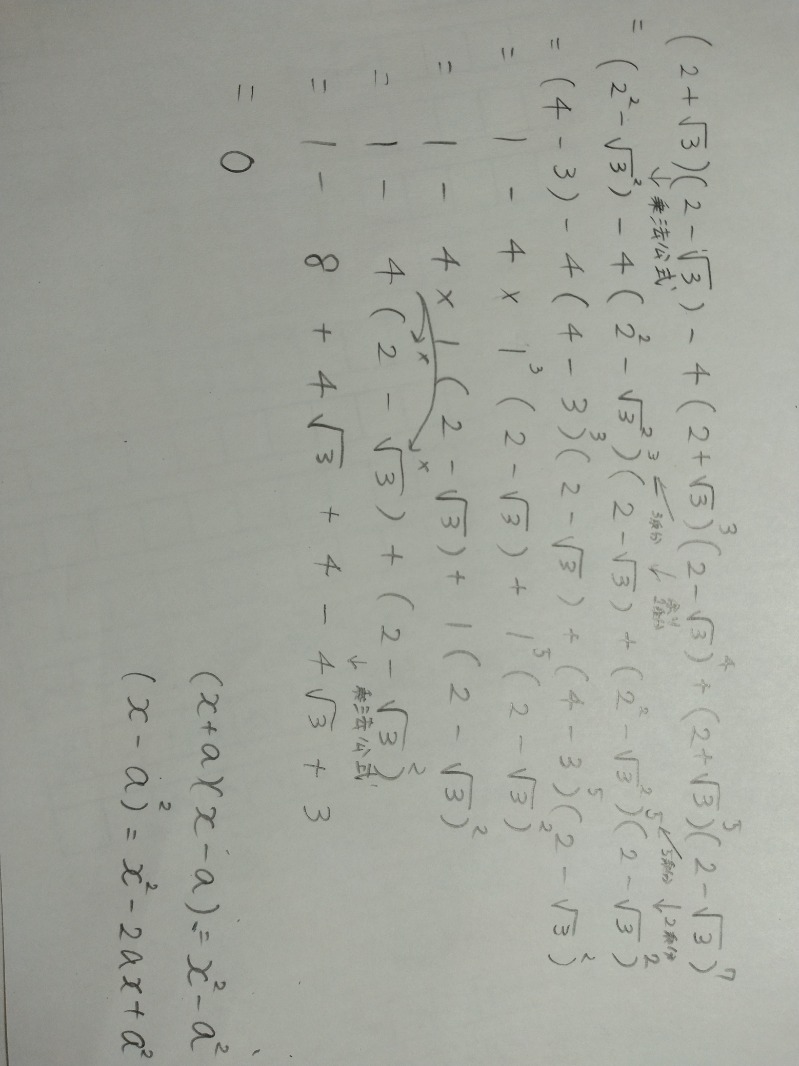 (2+√3)(2-√3) - 4(2+√3)³(2-√3)⁴ + (2+√3)⁵(2-√3)⁷
↓乗法公式
= (2²-√3²) - 4(2²-√3²)³(2-√3) + (2²-√3²)⁵(2-√3)²
3乗分 ↓ 5乗分 ↓2乗分
= (4-3) - 4(4-3)³(2-√3) + (4-3)⁵(2-√3)²
= 1 - 4 × 1³(2-√3) + 1⁵(2-√3)²
= 1 - 4 × 1(2-√3) + 1(2-√3)²
× ×
= 1 - 4(2-√3) + (2-√3)²
↓乗法公式
= 1 - 8 + 4√3 + 4 - 4√3 + 3
= 0
(x+a)(x-a) = x²-a²
(x-a)² = x²-2ax+a²